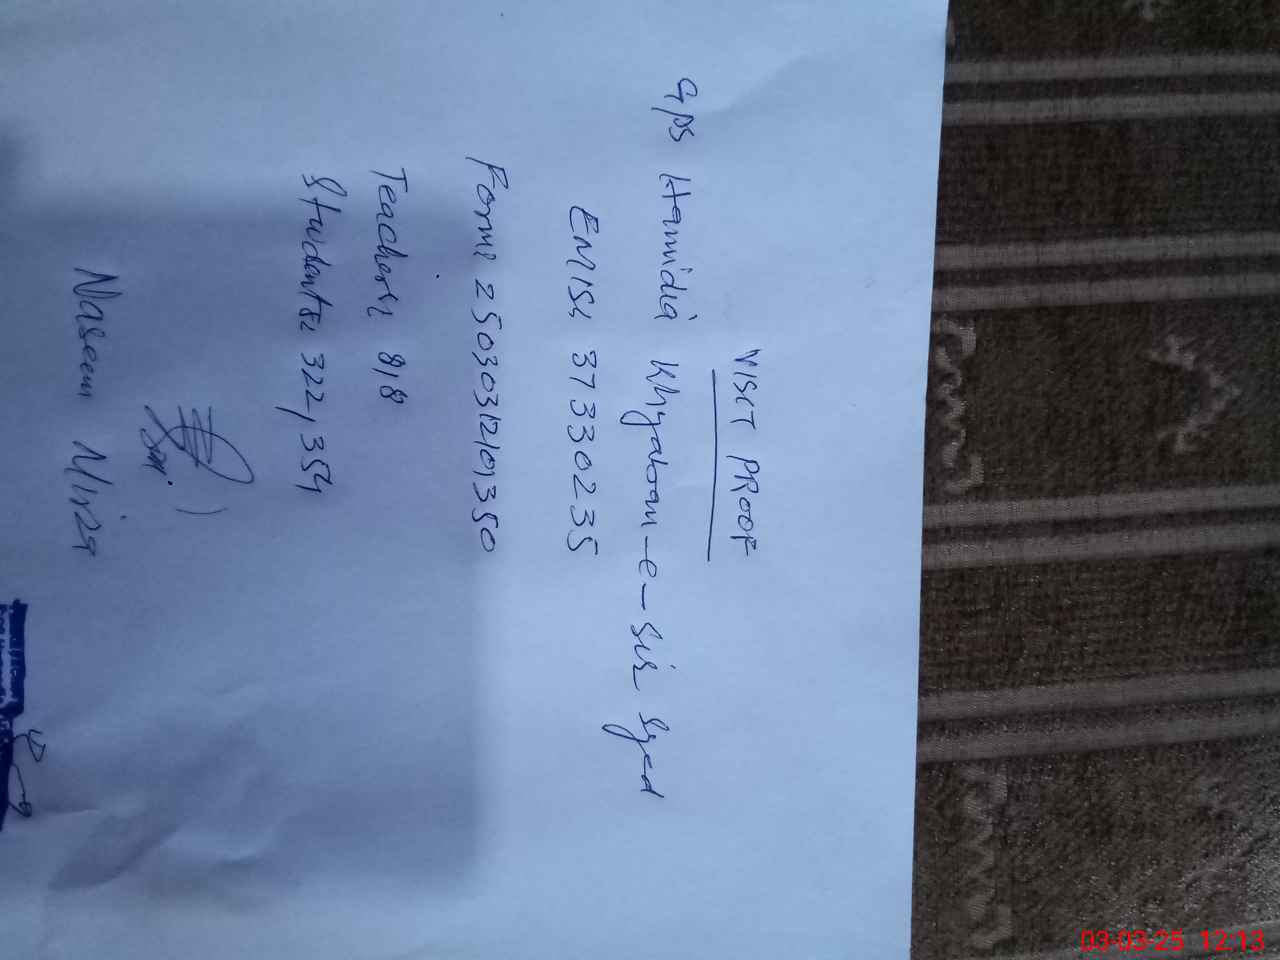 VISIT PROOF
GPS Hamidia Khyaban-e-Sir Syed
EMIS: 37330235
Form: 25030312101350
Teachers: 8,8
Students: 322, 354
Naseem Mirza
03-03-25 12:13